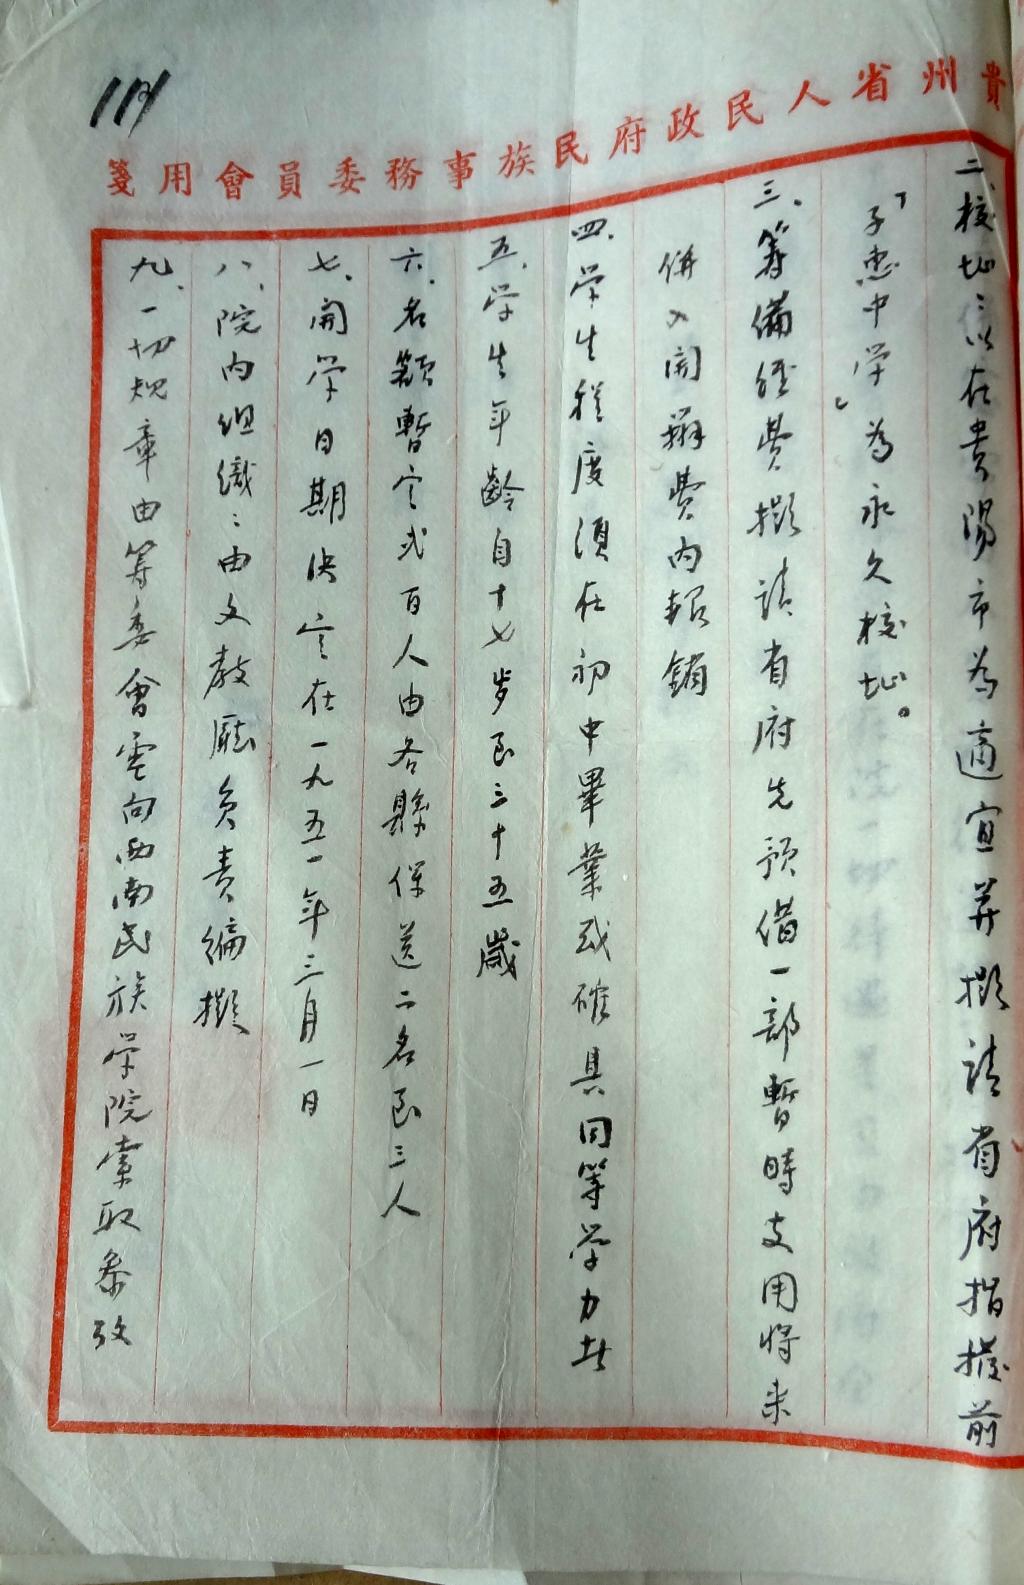 貴州省人民政府民族事務委員會用箋
二、校址:以在貴陽市為適宜并擬請省府指撥前
「子惠中学」為永久校址。
三、籌備經費擬請省府先預借一部暫時支用將来
併入開辦費内報銷
四、学生程度須在初中畢業或確具同等学力者
五、学生年齡自十七岁至三十五歲
六、名額暫定弍百人由各縣保送二名至三人
七、開学日期決定在一九五一年三月一日
八、院内组織:由文教廳負责編擬
九、一切规章由筹委會電向西南民族学院索取参攷